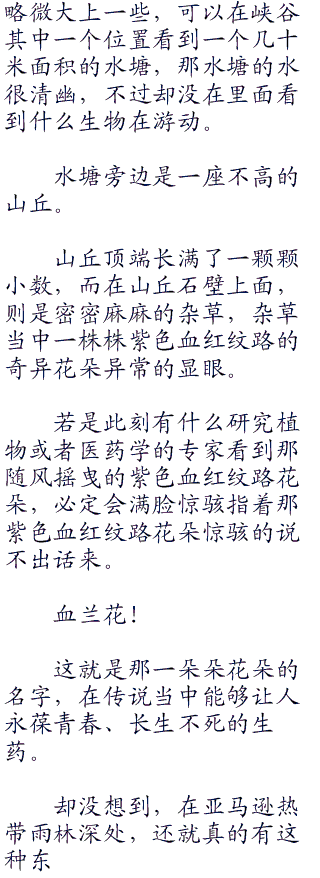 略微大上一些，可以在峡谷
其中一个位置看到一个几十
米面积的水塘，那水塘的水
很清幽，不过却没在里面看
到什么生物在游动。
水塘旁边是一座不高的
山丘。
山丘顶端长满了一颗颗
小数，而在山丘石壁上面，
则是密密麻麻的杂草，杂草
当中一株株紫色血红纹路的
奇异花朵异常的显眼。
若是此刻有什么研究植
物或者医药学的专家看到那
随风摇曳的紫色血红纹路花
朵，必定会满脸惊骇指着那
紫色血红纹路花朵惊骇的说
不出话来。
血兰花！
这就是那一朵朵花朵的
名字，在传说当中能够让人
永葆青春、长生不死的生
药。
却没想到，在亚马逊热
带雨林深处，还就真的有这
种东